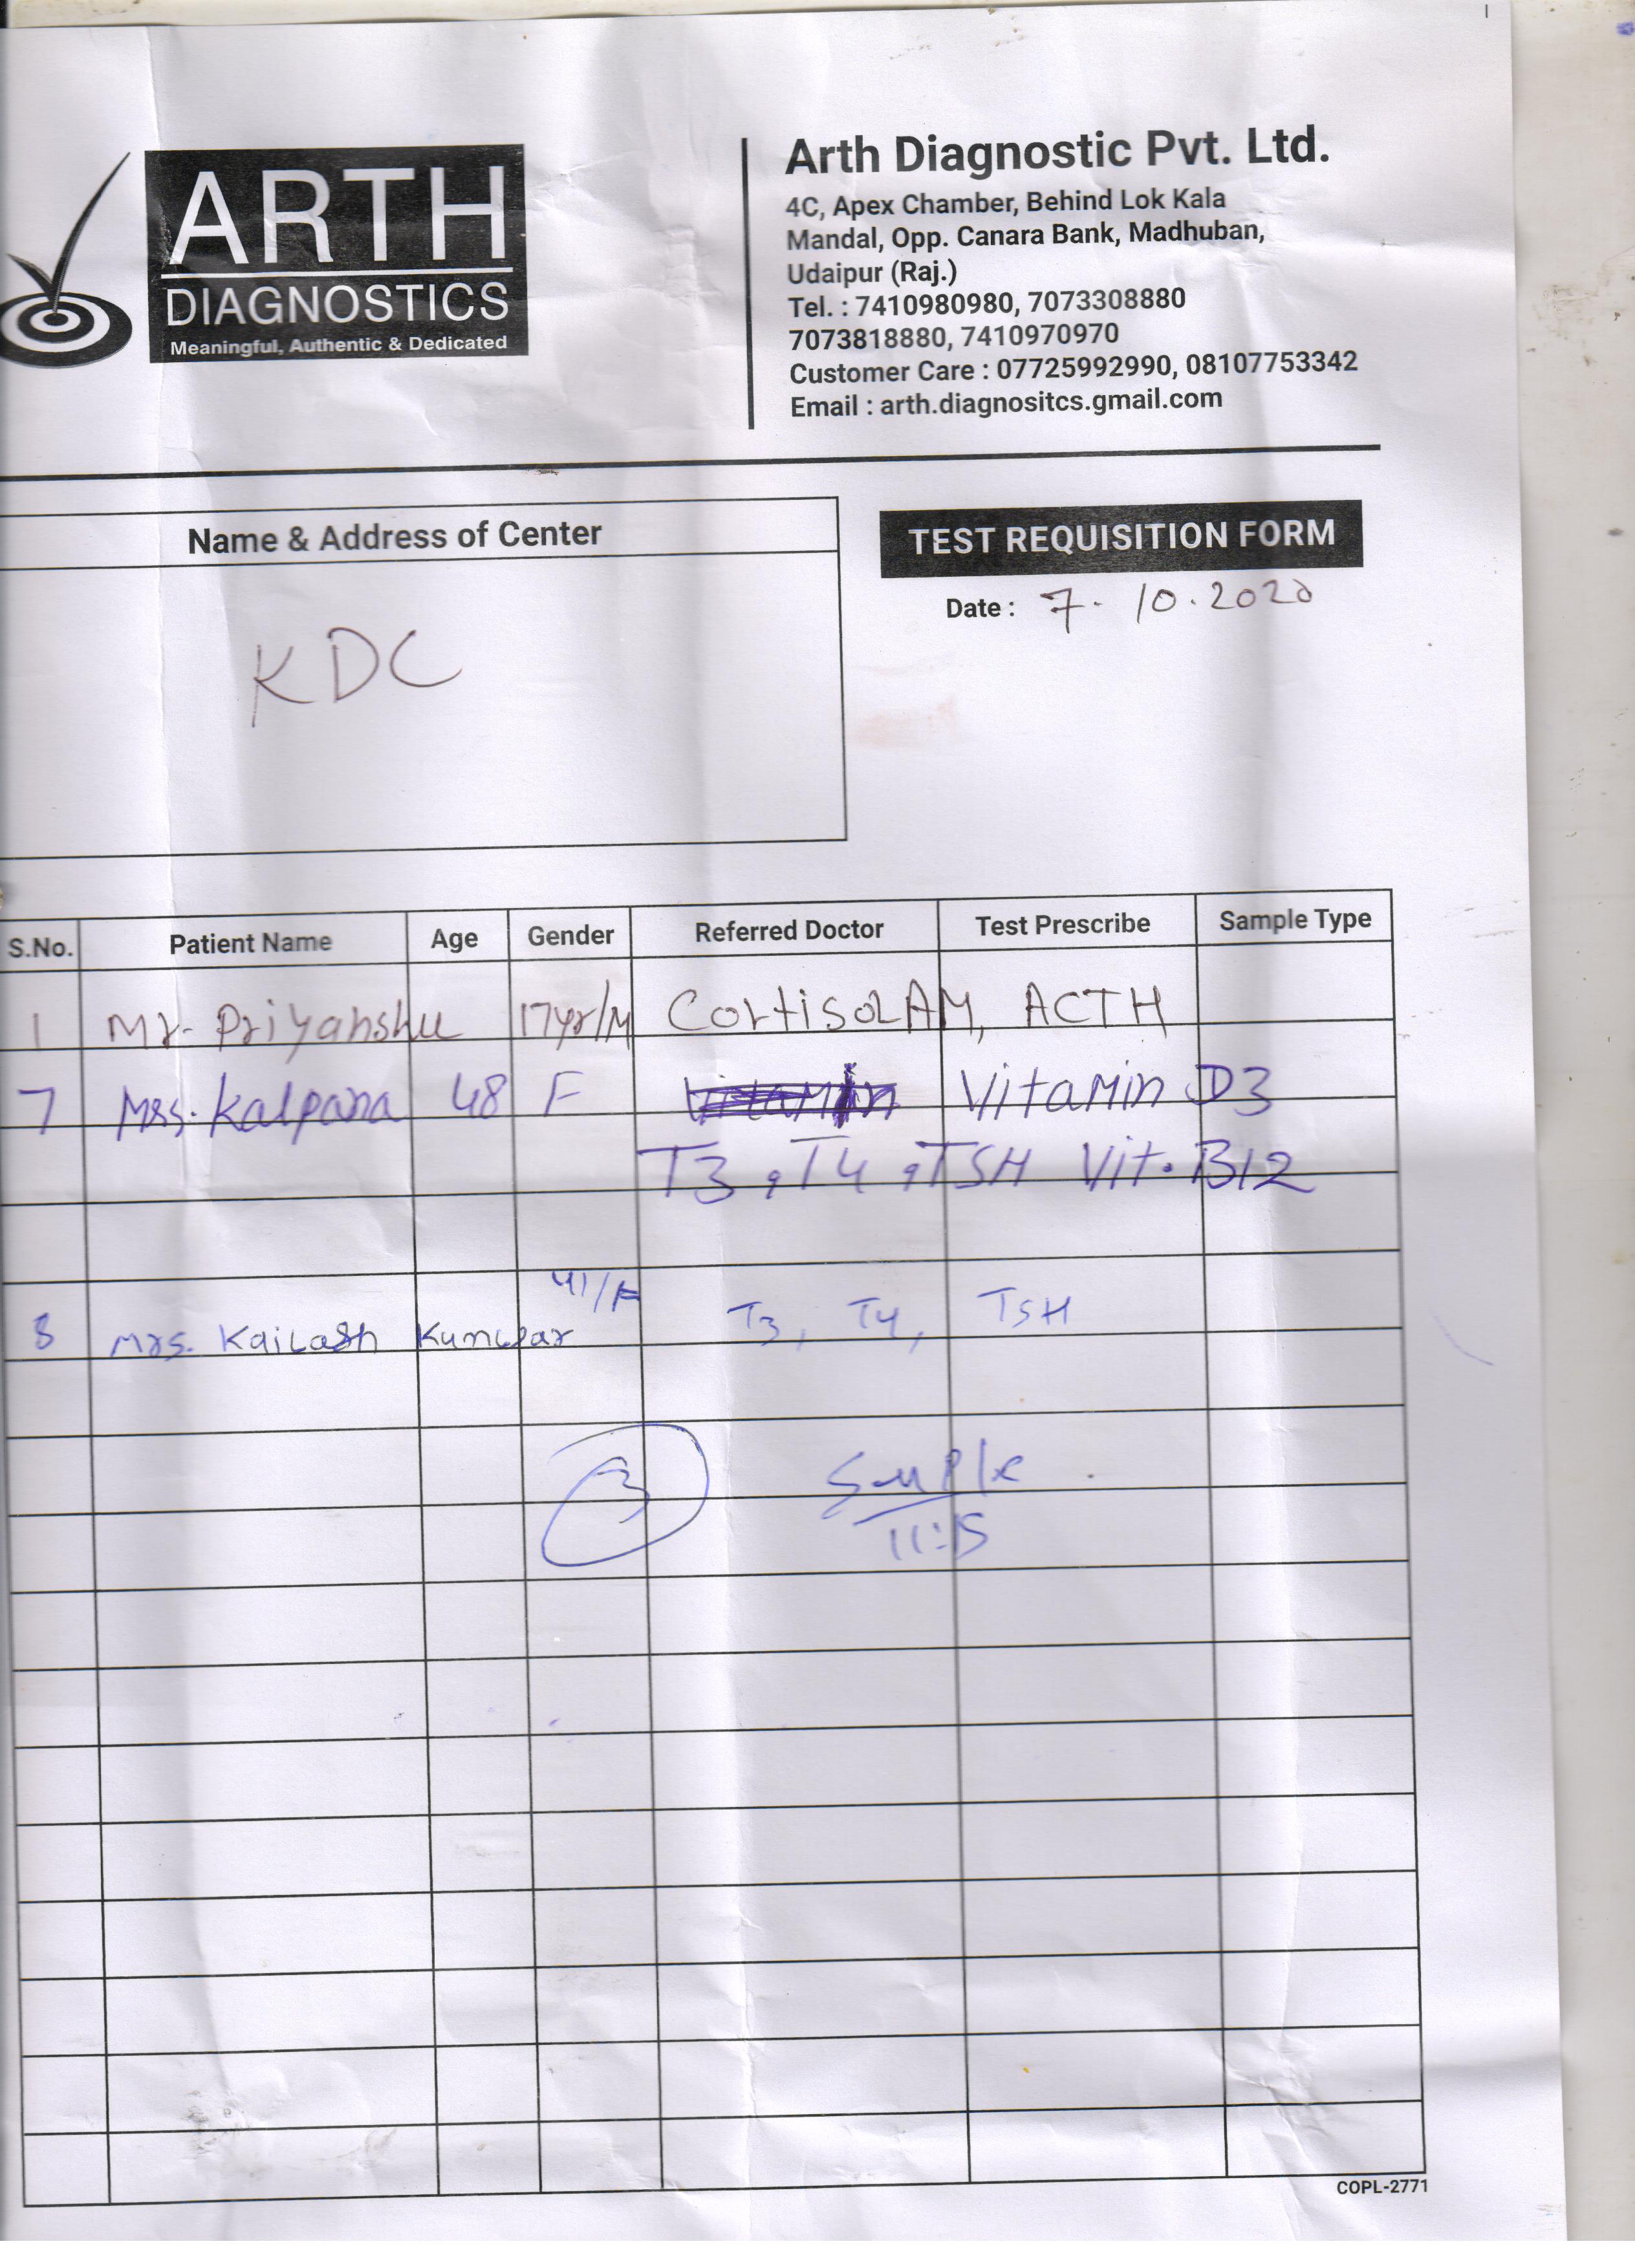 ARTH
DIAGNOSTICS
Meaningful, Authentic & Dedicated
Arth Diagnostic Pvt. Ltd.
4C, Apex Chamber, Behind Lok Kala
Mandal, Opp. Canara Bank, Madhuban,
Udaipur (Raj.)
Tel. : 7410980980, 7073308880
7073818880, 7410970970
Customer Care : 07725992990, 08107753342
Email : arth.diagnositcs.gmail.com
Name & Address of Center
KDC
TEST REQUISITION FORM
Date : 7. 10. 2020
S.No. Patient Name Age Gender Referred Doctor Test Prescribe Sample Type
1 Mr. Priyanshu 17yr/M Cortisol AM, ACTH
7 Mrs. Kalpana 48 F Vitamin D3
T3, T4, TSH Vit. B12
41/F
8 Mrs. Kailash Kunwar T3, T4, TSH
3 Sample
11:15
COPL-2771